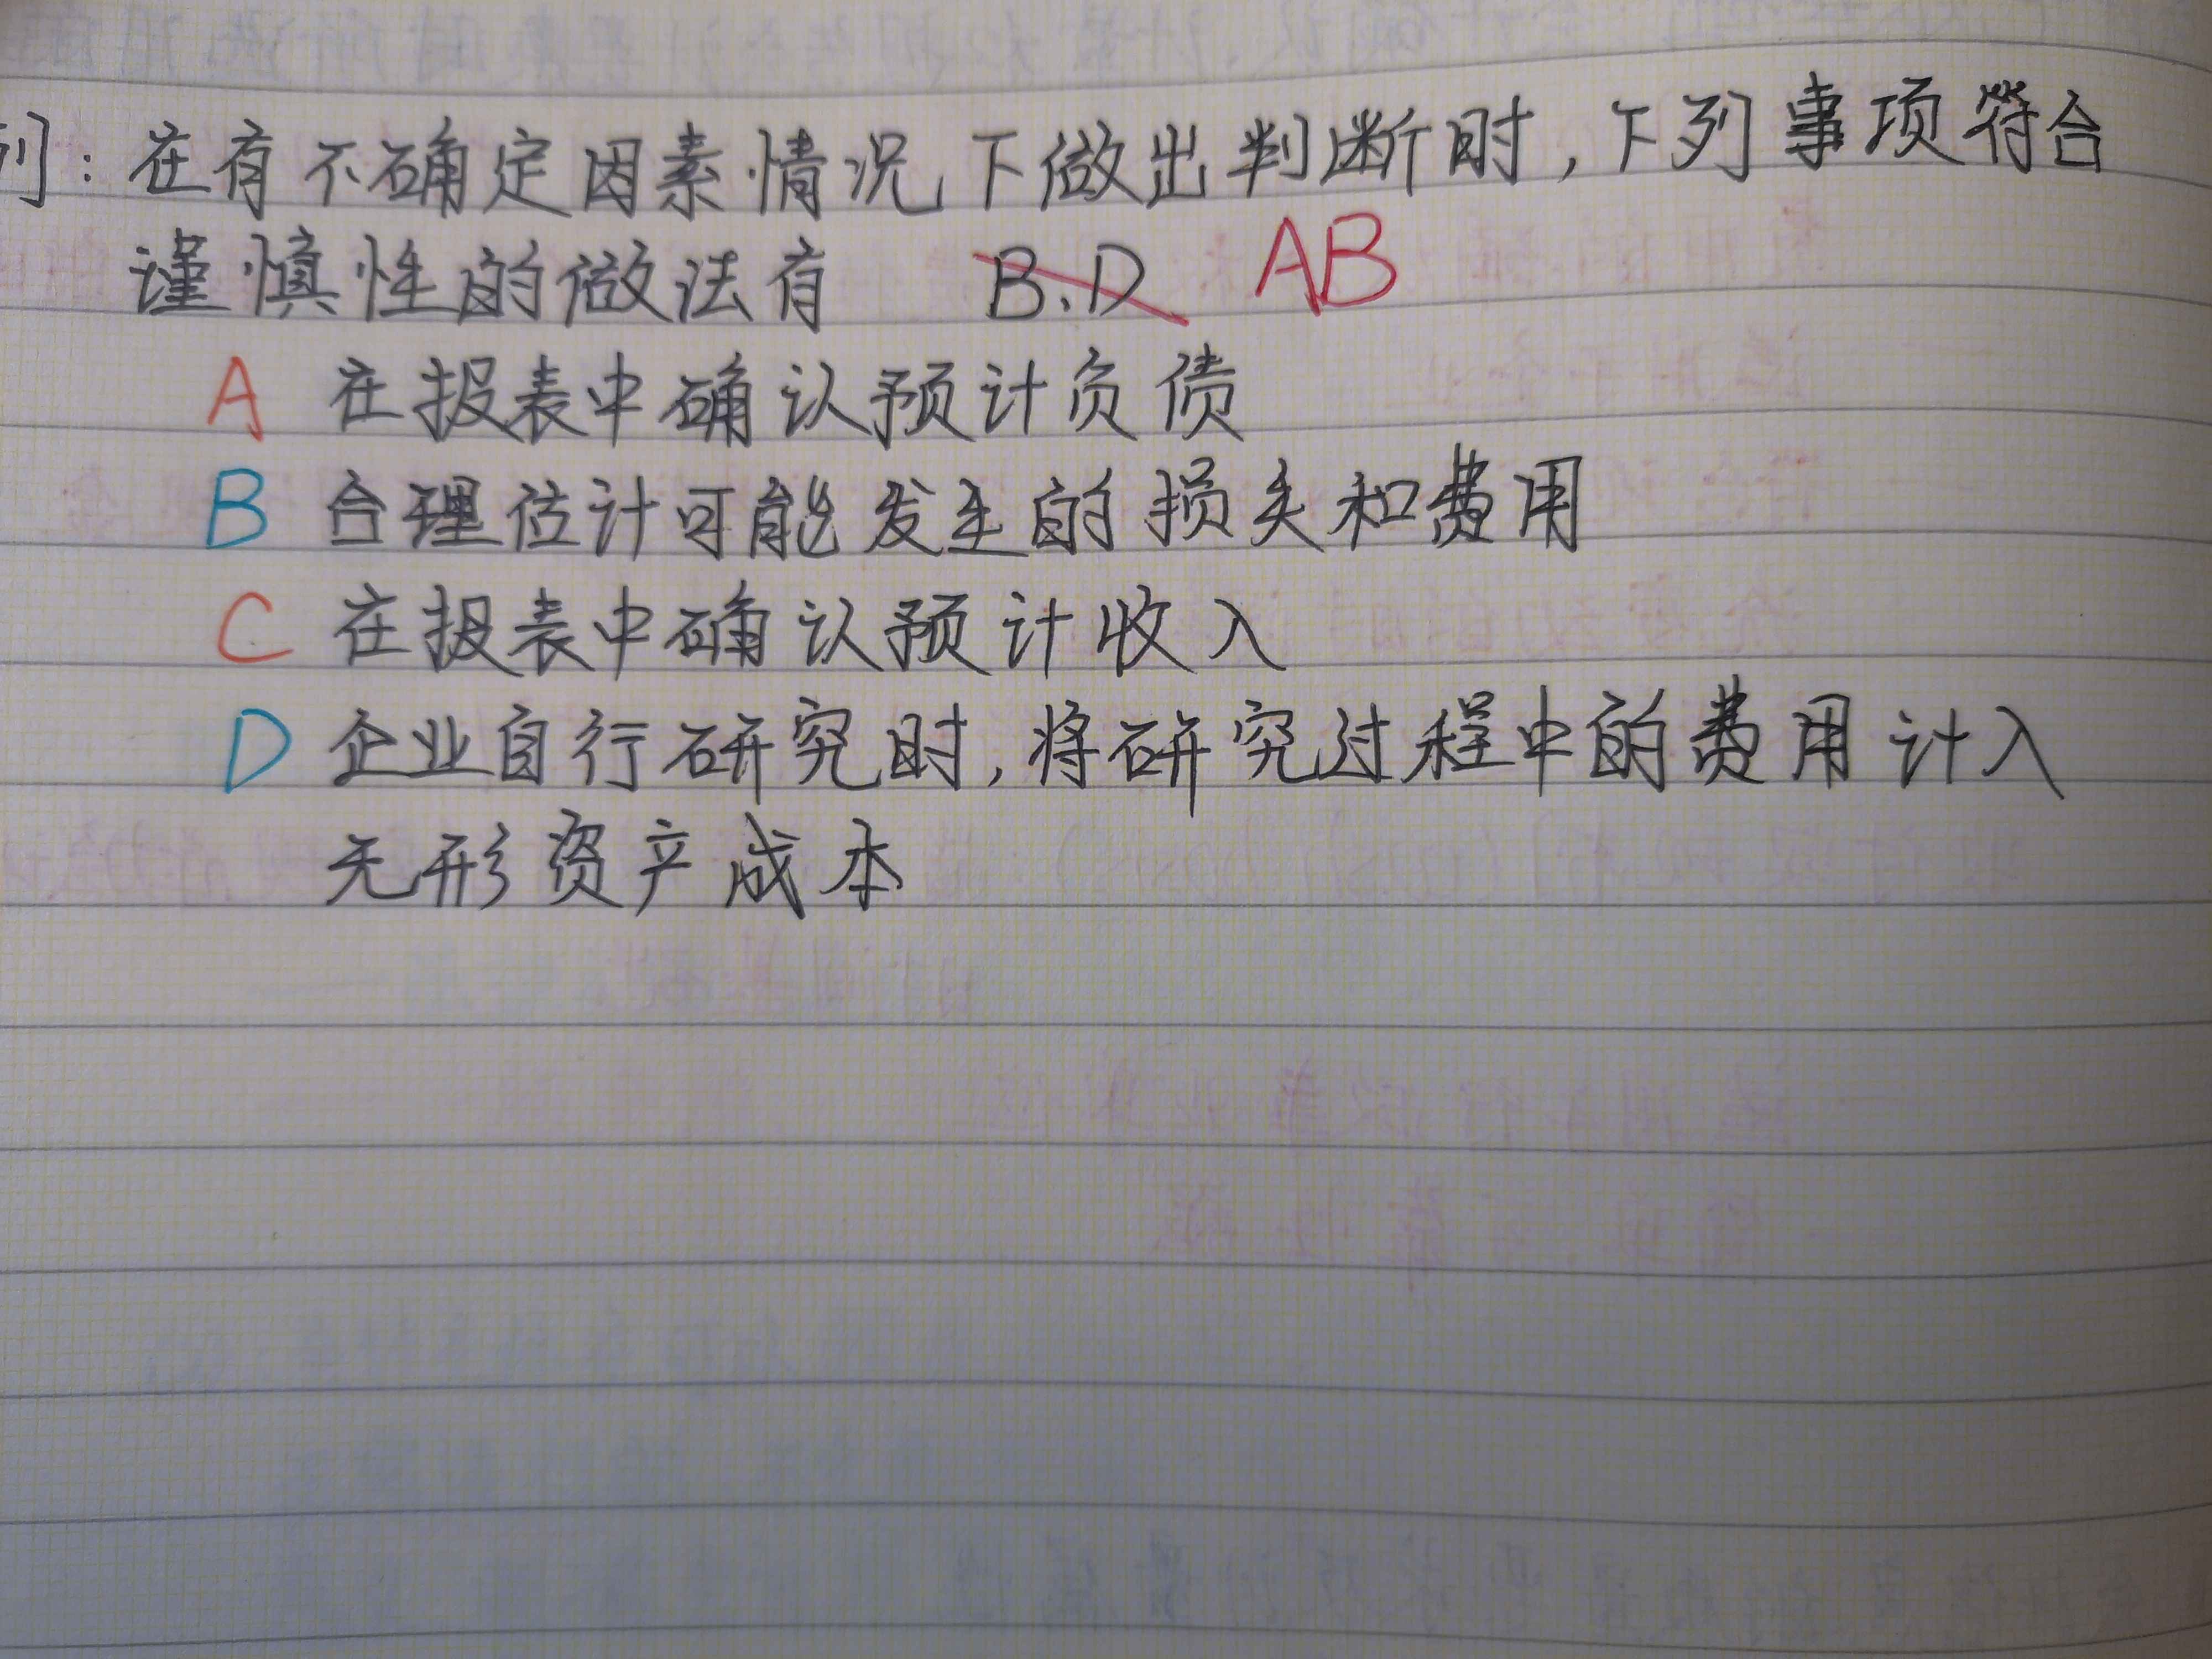 列：在有不确定因素情况下做出判断时，下列事项符合
谨慎性的做法有 B、D AB
A 在报表中确认预计负债
B 合理估计可能发生的损失和费用
C 在报表中确认预计收入
D 企业自行研究时，将研究过程中的费用计入
无形资产成本